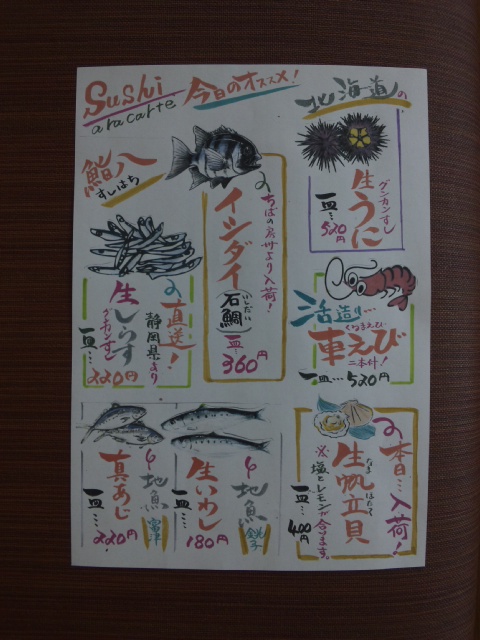 Sushi
a ra carte
今日のオススメ!
鮨八
すしはち
北海道の
生うに
グンカンすし
一皿…
520円
イシダイ
いしだい
石鯛
ちばの房州より入荷!
一皿…
360円
直送!
静岡県より
生しらす
グンカンすし
一皿…
220円
活造り…
くるまえび
車えび
二本付!
一皿…520円
地魚
富津
真あじ
一皿…
220円
地魚
銚子
生いわし
一皿…
180円
本日…入荷!
なま
ほたて
生帆立貝
※塩とレモンが合います。
一皿…
400円